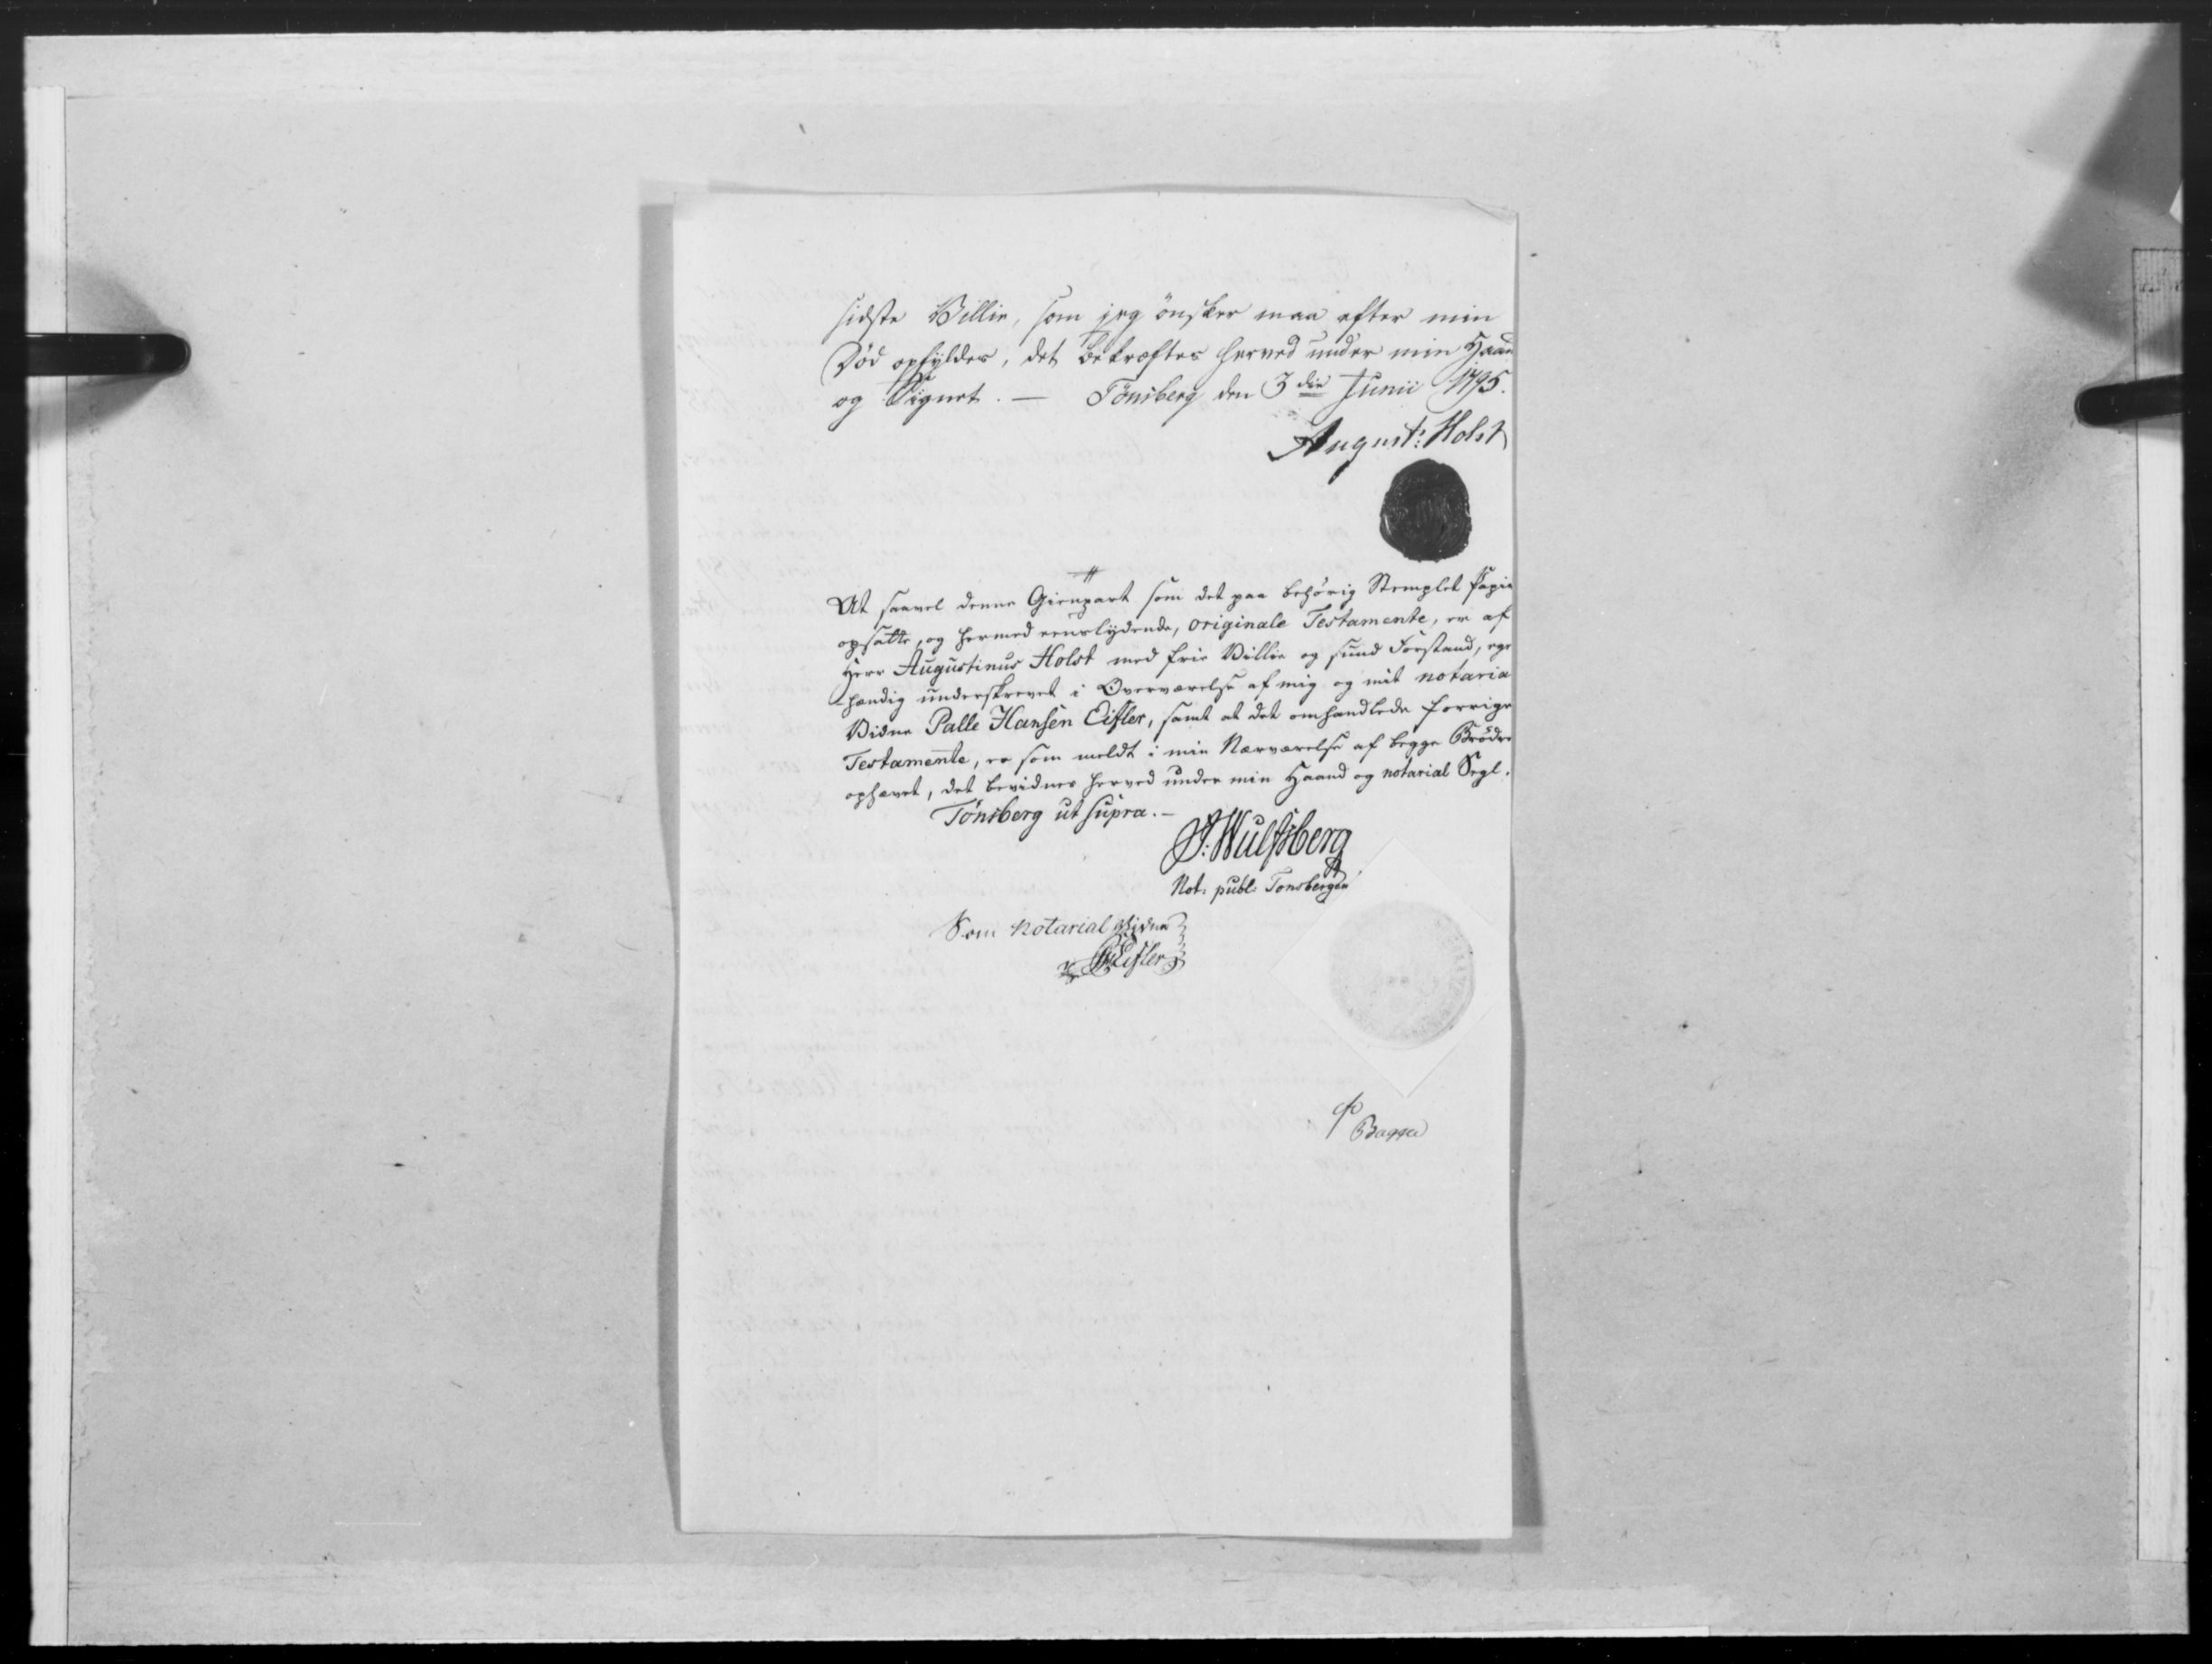 sidste Villie, som jeg önsker maa efter min
Död opfyldes, det bekræftes herved under min Haan
og Signet. — Tönsberg den 3die Junii 1795.
August: Holst
At saavel denne Gienpart som det paa behörig Stemplet Papir
opsatte, og hermed eenslydende, originale Testamente, er af
Herr Augustinus Holst med frie Villie og sund Forstand, egen
hændig underskrevet i Overværelse af mig og mit notaria
Vidne Palle Hansen Eisler, samt at det omhandlede forrige
Testamente, er som meldt i min Nærværelse af begge Brödre
ophævet, det bevidnes herved under min Haand og notarial Segl.
Tönsberg ut supra. —
J: Wulfsberg
Not: publ: Tonsbergen
Som notarial Vidne
PHEisler
Bagge